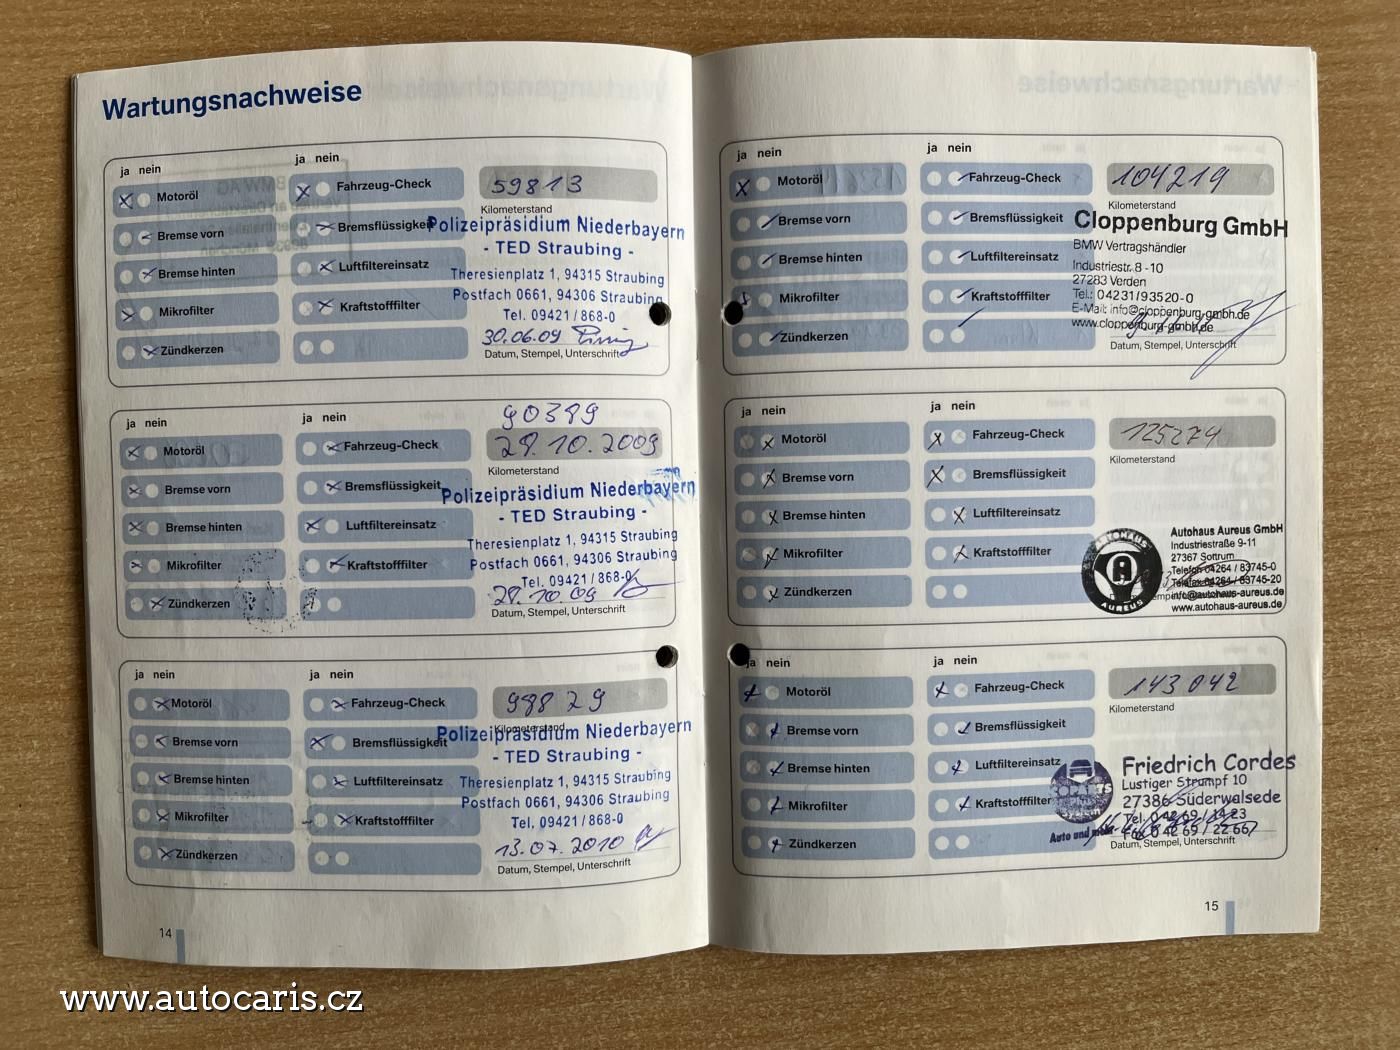 Wartungsnachweise
ja nein
ja nein
Motoröl
Fahrzeug-Check
59813
Kilometerstand
Bremse vorn
Bremsflüssigkeit
Polizeipräsidium Niederbayern
- TED Straubing -
Bremse hinten
Luftfiltereinsatz
Theresienplatz 1, 94315 Straubing
Postfach 0661, 94306 Straubing
Mikrofilter
Kraftstofffilter
Tel. 09421/868-0
30.06.09
Zündkerzen
Datum, Stempel, Unterschrift
ja nein
ja nein
90389
Motoröl
Fahrzeug-Check
29.10.2009
Kilometerstand
Bremse vorn
Bremsflüssigkeit
Polizeipräsidium Niederbayern
- TED Straubing -
Bremse hinten
Luftfiltereinsatz
Theresienplatz 1, 94315 Straubing
Postfach 0661, 94306 Straubing
Mikrofilter
Kraftstofffilter
Tel. 09421/868-0
29.10.09
Zündkerzen
Datum, Stempel, Unterschrift
ja nein
ja nein
Motoröl
Fahrzeug-Check
98829
Kilometerstand
Bremse vorn
Bremsflüssigkeit
Polizeipräsidium Niederbayern
- TED Straubing -
Bremse hinten
Luftfiltereinsatz
Theresienplatz 1, 94315 Straubing
Postfach 0661, 94306 Straubing
Mikrofilter
Kraftstofffilter
Tel. 09421/868-0
13.07.2010
Zündkerzen
Datum, Stempel, Unterschrift
14
ja nein
ja nein
Motoröl
Fahrzeug-Check
104219
Kilometerstand
Bremse vorn
Bremsflüssigkeit
Cloppenburg GmbH
BMW Vertragshändler
Bremse hinten
Luftfiltereinsatz
Industriestr. 8 - 10
27283 Verden
Mikrofilter
Kraftstofffilter
Tel.: 04231/93520-0
E-Mail: info@cloppenburg-gmbh.de
www.cloppenburg-gmbh.de
Zündkerzen
Datum, Stempel, Unterschrift
ja nein
ja nein
Motoröl
Fahrzeug-Check
125274
Kilometerstand
Bremse vorn
Bremsflüssigkeit
Bremse hinten
Luftfiltereinsatz
AUTOHAUS
A
AUREUS
Autohaus Aureus GmbH
Industriestraße 9-11
27367 Sottrum
Mikrofilter
Kraftstofffilter
Telefon 04264 / 83745-0
Telefax 04264 / 83745-20
info@autohaus-aureus.de
www.autohaus-aureus.de
Zündkerzen
ja nein
ja nein
Motoröl
Fahrzeug-Check
143042
Kilometerstand
Bremse vorn
Bremsflüssigkeit
Bremse hinten
Luftfiltereinsatz
Friedrich Cordes
Lustiger Strumpf 10
27386 Süderwalsede
Mikrofilter
Kraftstofffilter
Auto und mehr
Fax 0 42 69 / 22 66
Zündkerzen
Datum, Stempel, Unterschrift
15
www.autocaris.cz